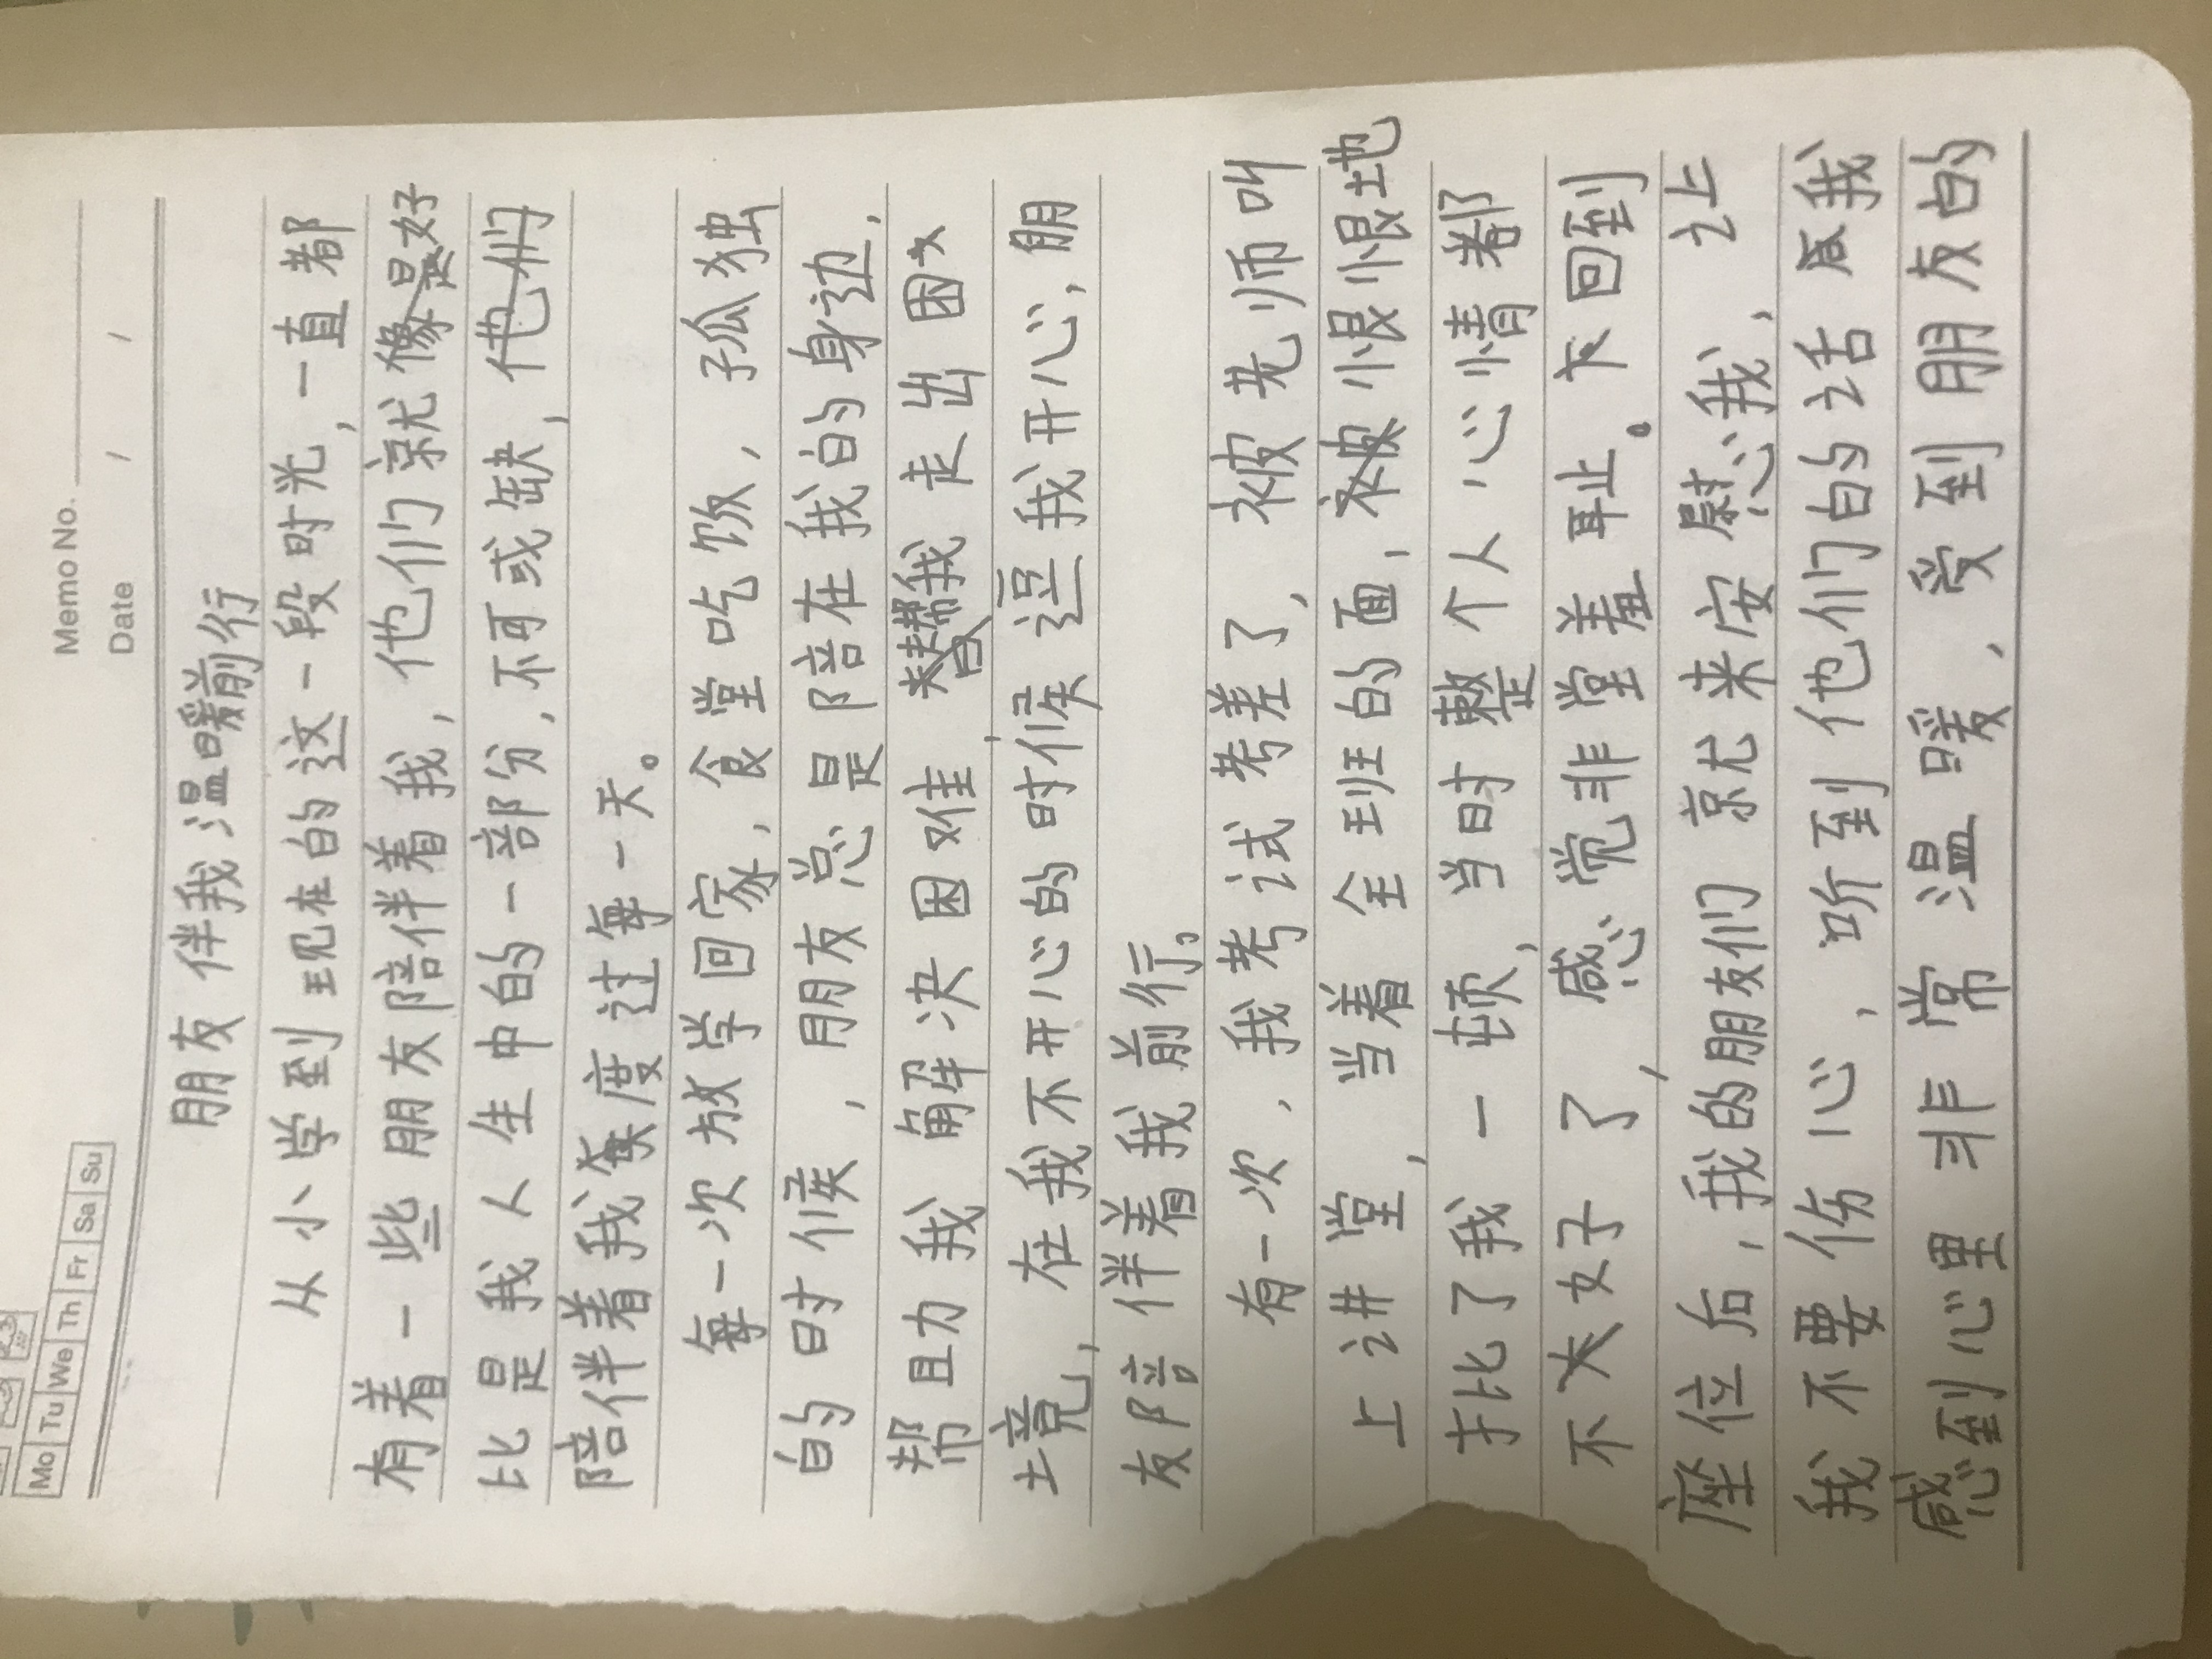 Memo No.
Date / /
Mo Tu We Th Fr Sa Su
朋友伴我温暖前行
从小学到现在的这一段时光，一直都
有着一些朋友陪伴着我，他们就像是好
比是我人生中的一部分，不可或缺，他们
陪伴着我度过每一天。
每一次放学回家，食堂吃饭，孤独
的时候，朋友总是陪在我的身边，
帮助我解决困难，帮我走出困
境，在我不开心的时候逗我开心，朋
友陪伴着我前行。
有一次，我考试考差了，被老师叫
上讲堂，当着全班的面，被狠狠地
批了我一顿，当时整个人心情都
不太好了，感觉非常羞耻。下回到
座位后，我的朋友们就来安慰我，让
我不要伤心，听到他们的话感我
感到心里非常温暖，受到朋友的